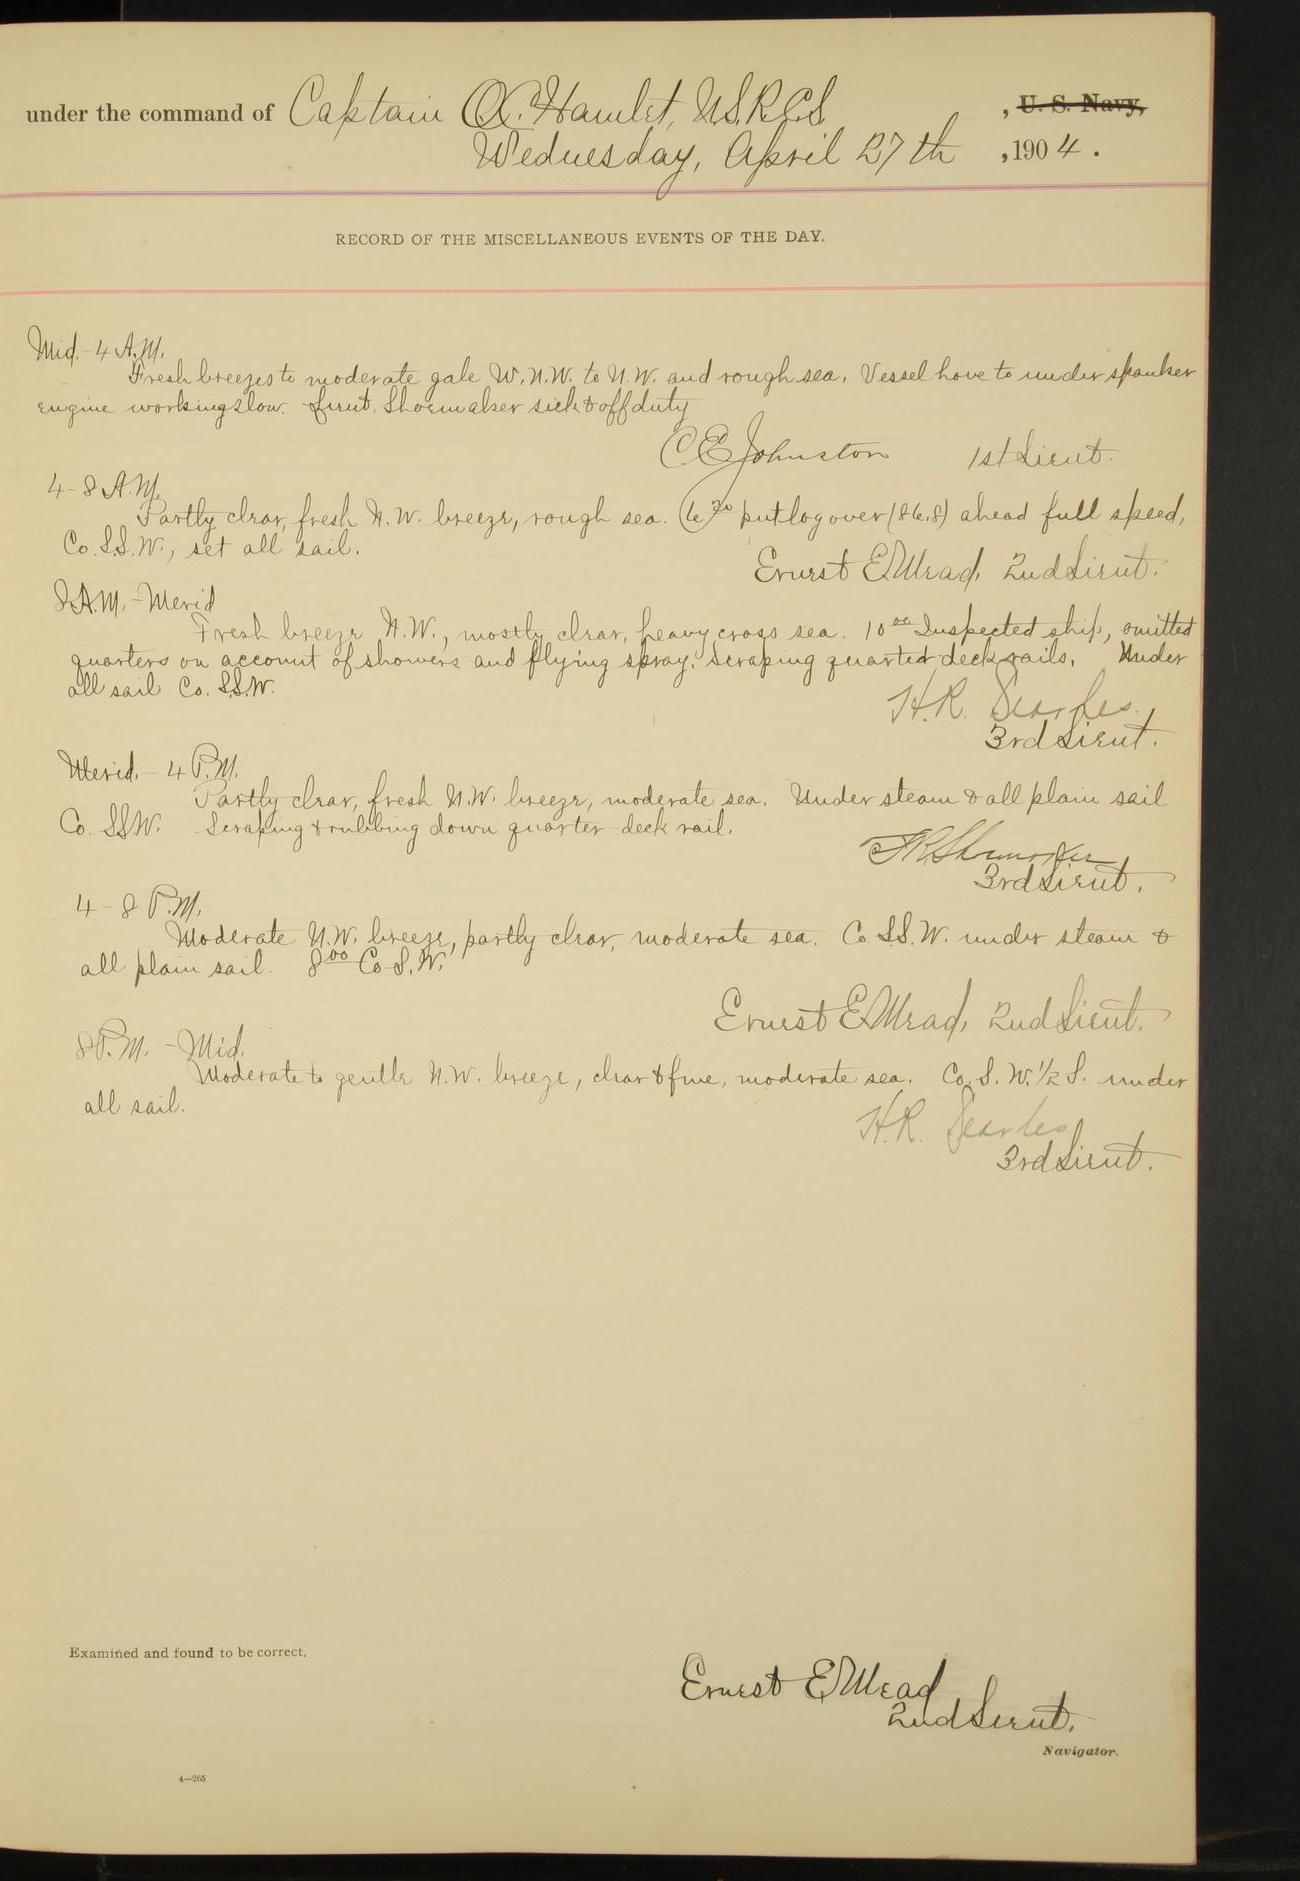 under the command of Captain O.C. Hamlet, U.S.R.C.S , U. S. Navy,
Wednesday, April 27th , 1904.
RECORD OF THE MISCELLANEOUS EVENTS OF THE DAY.
Mid. - 4 A.M.
Fresh breezes to moderate gale W.N.W. to N.W. and rough sea. Vessel hove to under spanker
engine working slow. Lieut. Shoemaker sick & off duty
C E Johnston 1st Lieut.
4 - 8 A.M.
Partly clear, fresh N.W. breeze, rough sea. 6 30 put log over (86.8) ahead full speed,
Co. S.S.W., set all sail.
Ernest E. Mead, 2nd Lieut.
8 A.M. - Merid
Fresh breeze N.W., mostly clear, heavy cross sea. 10 00 Inspected ship, omitted
quarters on account of showers and flying spray. Scraping quarter deck rails. Under
all sail Co. S.S.W.
H.R. Searles.
3rd Lieut.
Merid. - 4 P.M.
Partly clear, fresh N.W. breeze, moderate sea. Under steam & all plain sail
Co. SSW. Scraping & rubbing down quarter-deck rail.
F.R. Shoemaker
3rd Lieut.
4 - 8 P.M.
Moderate N.W. breeze, partly clear, moderate sea. Co. S.S.W. under steam &
all plain sail. 8 00 Co S.W.
Ernest E. Mead, 2nd Lieut.
8 P.M. - Mid.
Moderate to gentle N.W. breeze, clear & fine, moderate sea. Co. S.W. 1/2 S. under
all sail.
H.R. Searles
3rd Lieut.
Examined and found to be correct.
Ernest E. Mead
2nd Lieut.
Navigator.
4—265